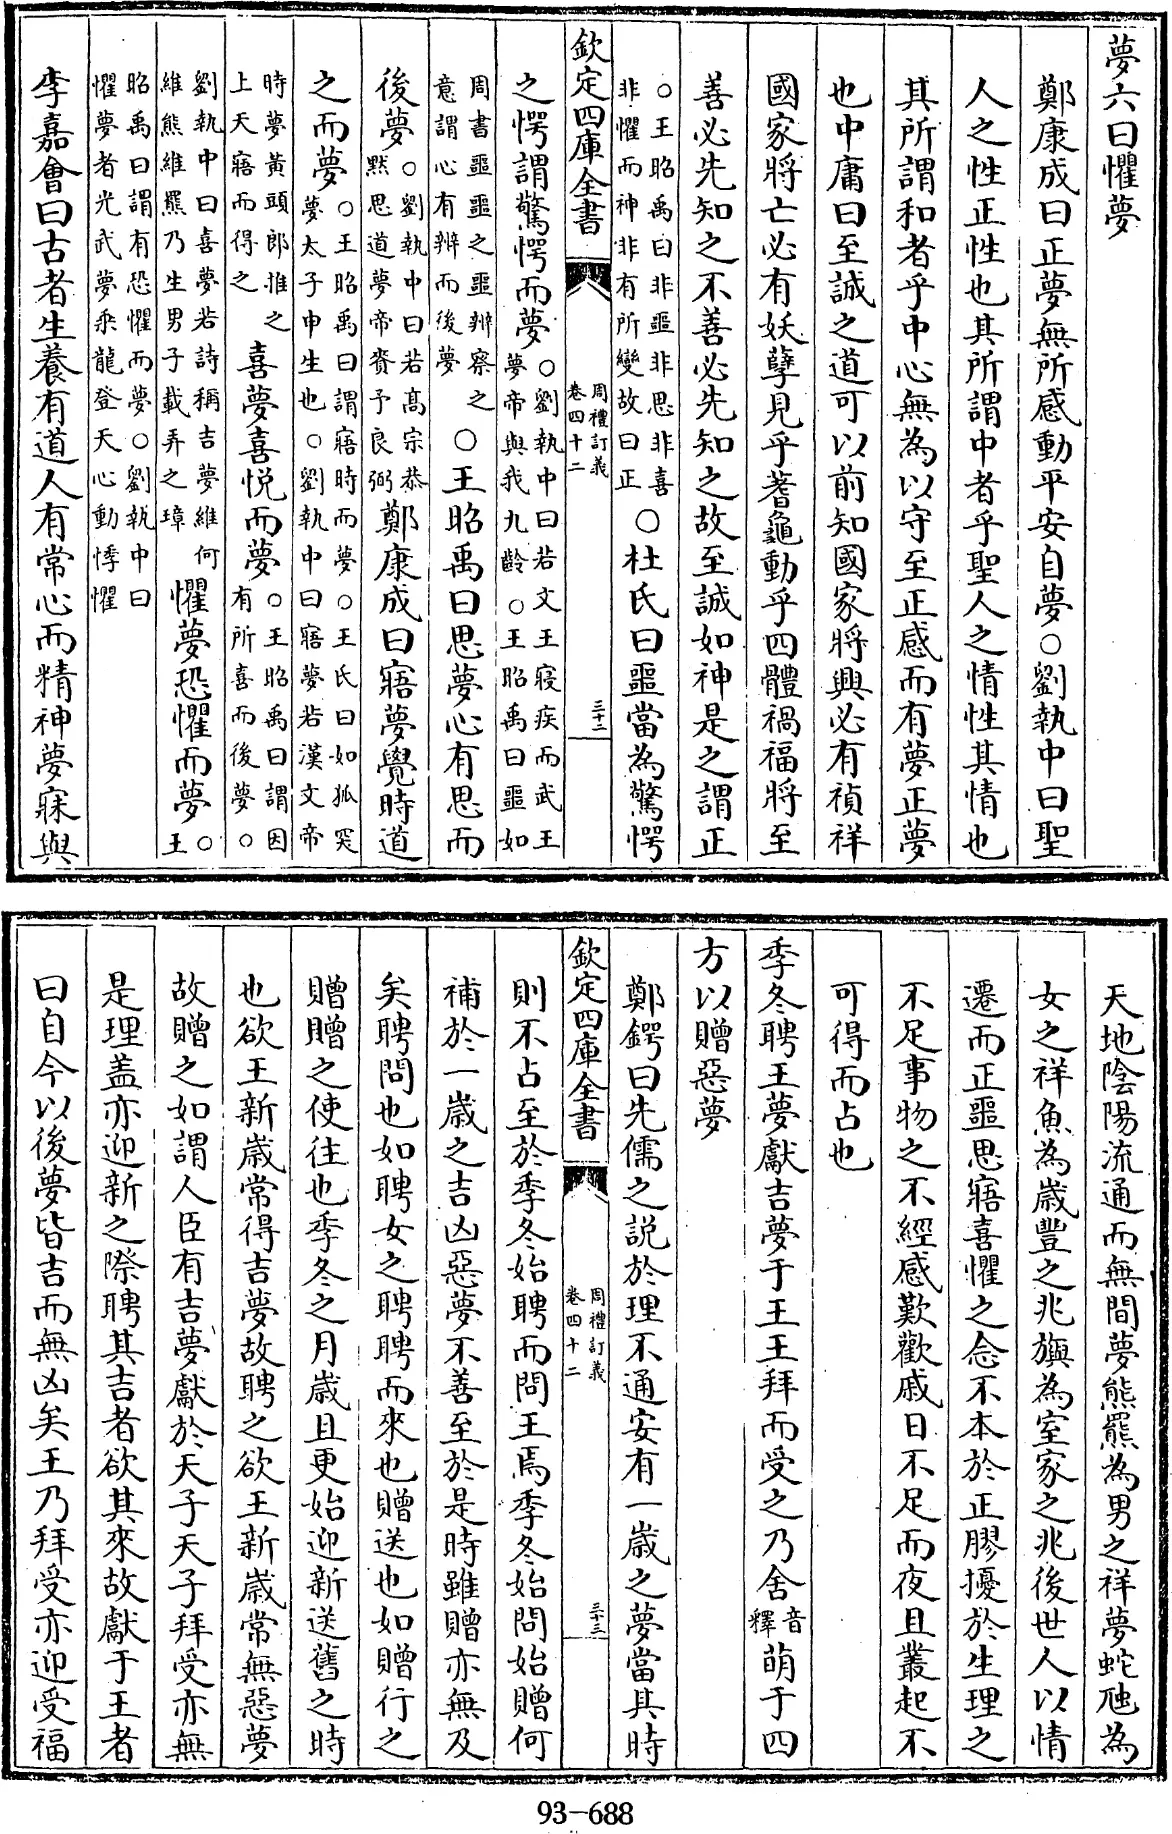 夢六曰懼夢
鄭康成曰正夢無所感動平安自夢○劉執中曰聖
人之性正性也其所謂中者乎聖人之情性其情也
其所謂和者乎中心無為以守至正感而有夢正夢
也中庸曰至誠之道可以前知國家將興必有禎祥
國家將亡必有妖孽見乎蓍龜動乎四體禍福將至
善必先知之不善必先知之故至誠如神是之謂正
○王昭禹曰非噩非思非喜
非懼而神非有所變故曰正
○杜氏曰噩當為驚愕
欽定四庫全書
周禮訂義
卷四十二
三十二
之愕謂驚愕而夢
○劉執中曰若文王寢疾而武王
夢帝與我九齡○王昭禹曰噩如
周書噩噩之噩辨察之
意謂心有辨而後夢
○王昭禹曰思夢心有思而
後夢
○劉執中曰若高宗恭
默思道夢帝賚予良弼
鄭康成曰寤夢覺時道
之而夢
○王昭禹曰謂寤時而夢○王氏曰如狐突
夢太子申生也○劉執中曰寤夢若漢文帝
時夢黃頭郎推之
上天寤而得之
喜夢喜悅而夢
○王昭禹曰謂因
有所喜而後夢○
劉執中曰喜夢若詩稱吉夢維何
維熊維羆乃生男子載弄之璋
懼夢恐懼而夢
○
王
昭禹曰謂有恐懼而夢○劉執中曰
懼夢者光武夢乘龍登天心動悸懼
李嘉會曰古者生養有道人有常心而精神夢寐與
天地陰陽流通而無間夢熊羆為男之祥夢蛇虺為
女之祥魚為歲豐之兆旟為室家之兆後世人以情
遷而正噩思寤喜懼之念不本於正膠擾於生理之
不足事物之不經感歎歡戚日不足而夜且叢起不
可得而占也
季冬聘王夢獻吉夢于王王拜而受之乃舍
音
釋
萌于四
方以贈惡夢
鄭鍔曰先儒之說於理不通安有一歲之夢當其時
欽定四庫全書
周禮訂義
卷四十二
三十三
則不占至於季冬始聘而問王焉季冬始問始贈何
補於一歲之吉凶惡夢不善至於是時雖贈亦無及
矣聘問也如聘女之聘聘而來也贈送也如贈行之
贈贈之使往也季冬之月歲且更始迎新送舊之時
也欲王新歲常得吉夢故聘之欲王新歲常無惡夢
故贈之如謂人臣有吉夢獻於天子天子拜受亦無
是理蓋亦迎新之際聘其吉者欲其來故獻于王者
曰自今以後夢皆吉而無凶矣王乃拜受亦迎受福
93-688